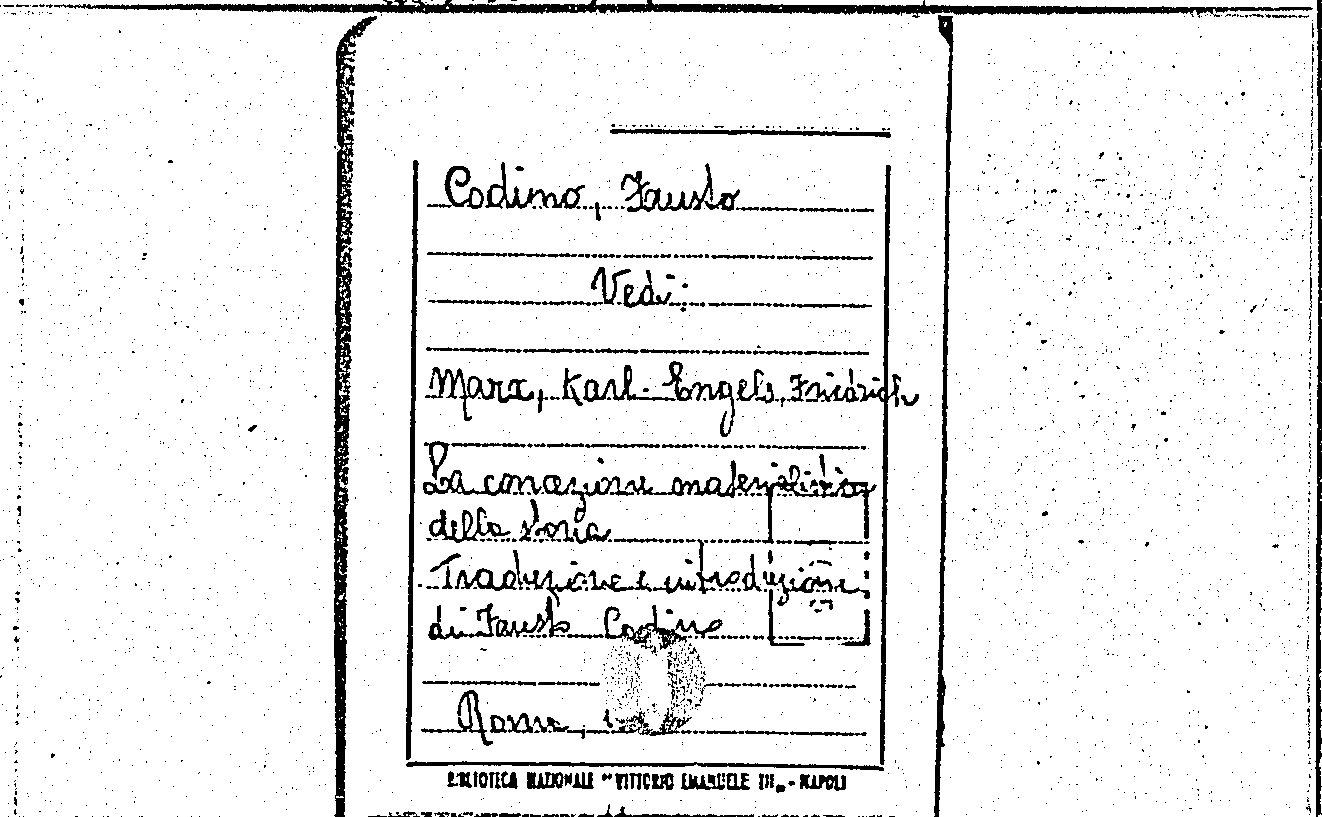 Codino, Fausto
Vedi:
Marx, Karl - Engels, Friedrich
La concezione materialistica
della storia
Traduzione e introduzione
di Fausto Codino
Roma,
BIBLIOTECA NAZIONALE "VITTORIO EMANUELE III„ - NAPOLI